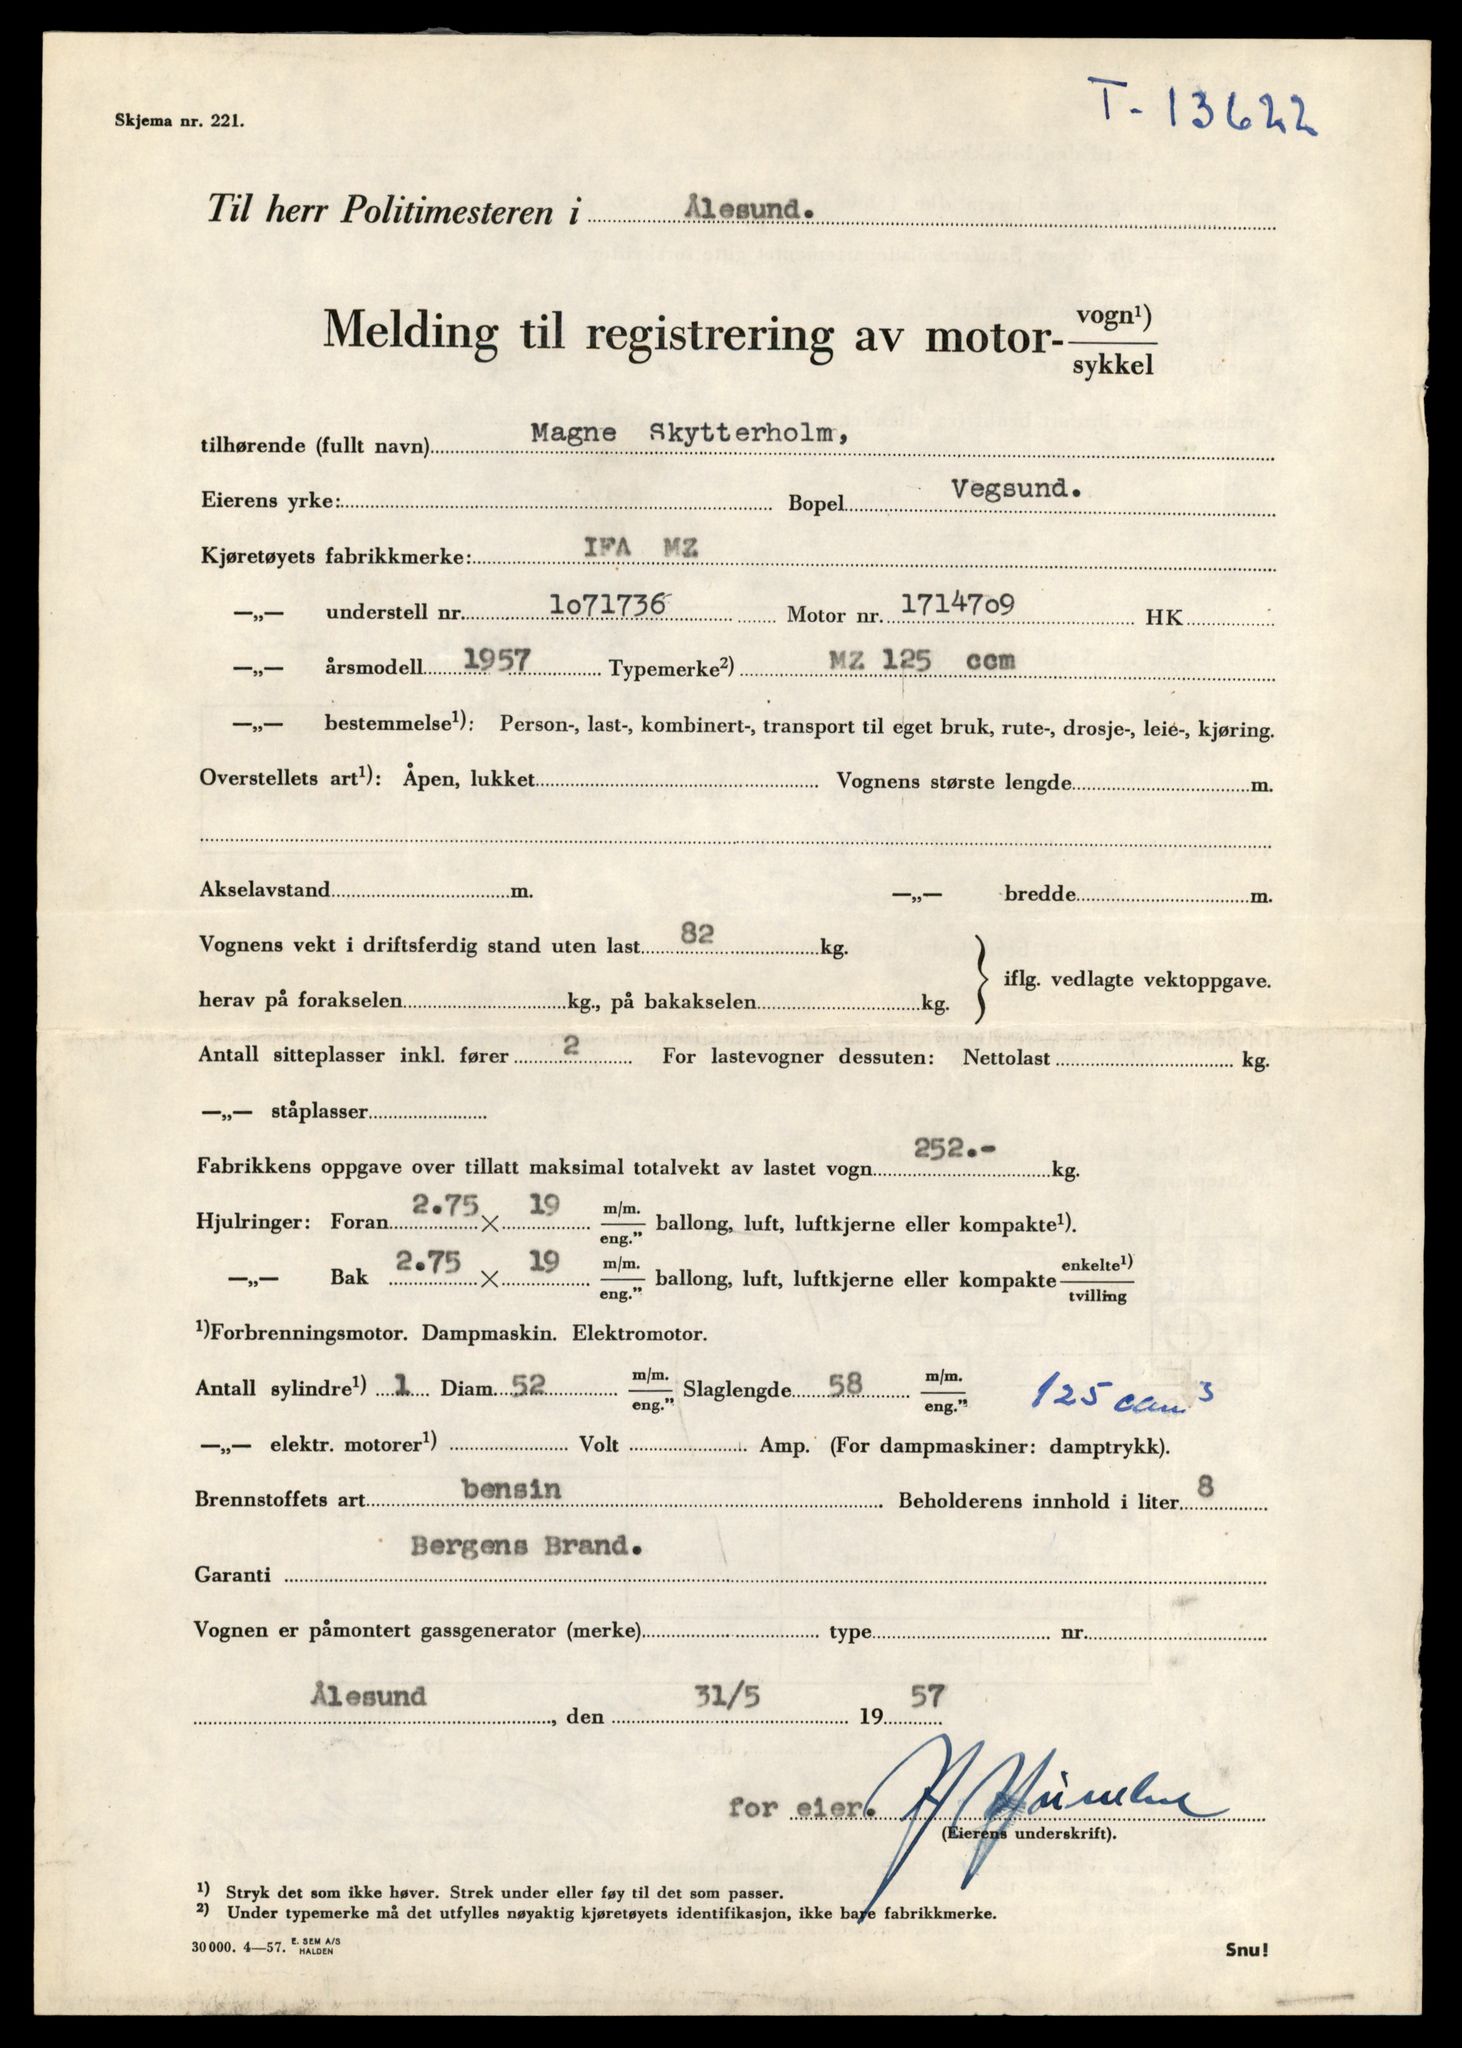 T-13622
Skjema nr. 221.
Til herr Politimesteren i Ålesund.
Melding til registrering av motor- vogn¹) sykkel
tilhørende (fullt navn) Magne Skytterholm,
Eierens yrke: Bopel Vegsund.
Kjøretøyets fabrikkmerke: IFA MZ
—„— understell nr. 1o71736 Motor nr. 17147o9 HK
—„— årsmodell 1957 Typemerke²) MZ 125 ccm
—„— bestemmelse¹): Person-, last-, kombinert-, transport til eget bruk, rute-, drosje-, leie-, kjøring.
Overstellets art¹): Åpen, lukket Vognens største lengde m.
Akselavstand m. —„— bredde m.
Vognens vekt i driftsferdig stand uten last 82 kg.
herav på forakselen kg., på bakakselen kg. } iflg. vedlagte vektoppgave.
Antall sitteplasser inkl. fører 2 For lastevogner dessuten: Nettolast kg.
—„— ståplasser
Fabrikkens oppgave over tillatt maksimal totalvekt av lastet vogn 252.- kg.
Hjulringer: Foran 2.75 × 19 m/m. eng." ballong, luft, luftkjerne eller kompakte¹).
—„— Bak 2.75 × 19 m/m. eng." ballong, luft, luftkjerne eller kompakte enkelte¹) tvilling
¹)Forbrenningsmotor. Dampmaskin. Elektromotor.
Antall sylindre¹) 1 Diam. 52 m/m. eng." Slaglengde 58 m/m. eng." 125 ccm³
—„— elektr. motorer¹) Volt Amp. (For dampmaskiner: damptrykk).
Brennstoffets art bensin Beholderens innhold i liter 8
Garanti Bergens Brand.
Vognen er påmontert gassgenerator (merke) type nr.
Ålesund, den 31/5 19 57
for eier.
(Eierens underskrift).
¹) Stryk det som ikke høver. Strek under eller føy til det som passer.
²) Under typemerke må det utfylles nøyaktig kjøretøyets identifikasjon, ikke bare fabrikkmerke.
30 000. 4—57. E. SEM A/S HALDEN
Snu!